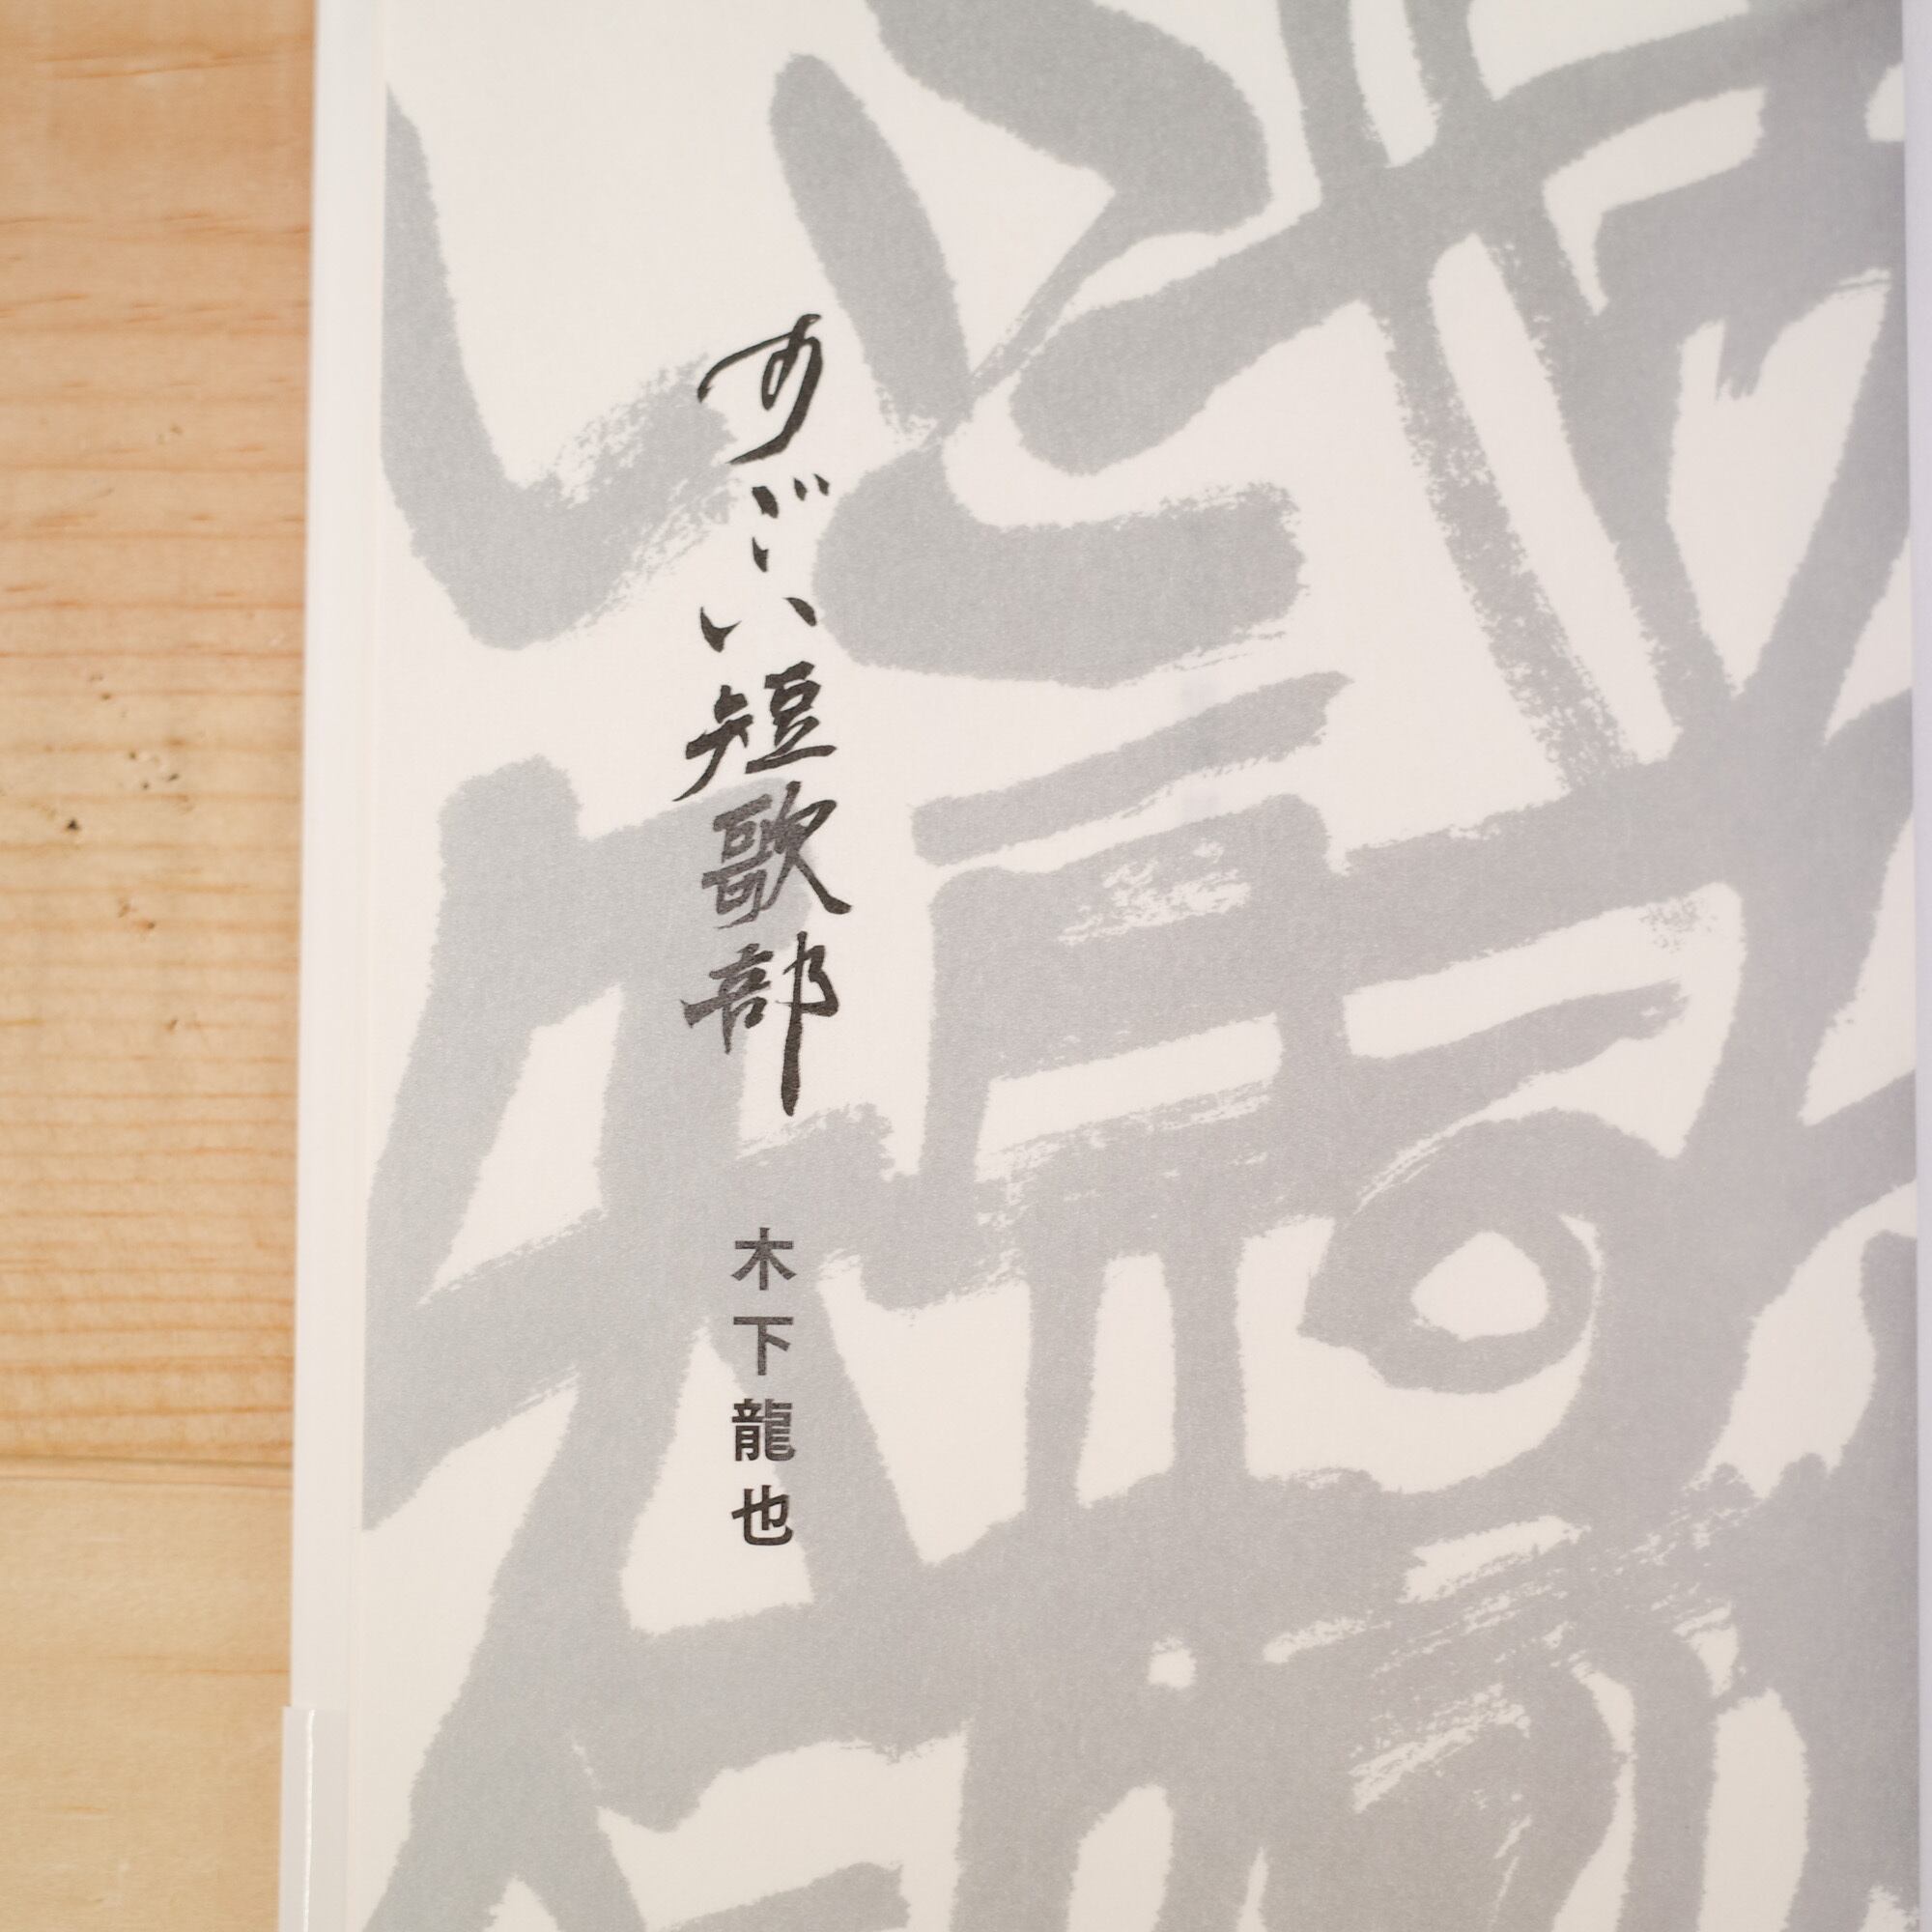 すごい短歌部
木下龍也